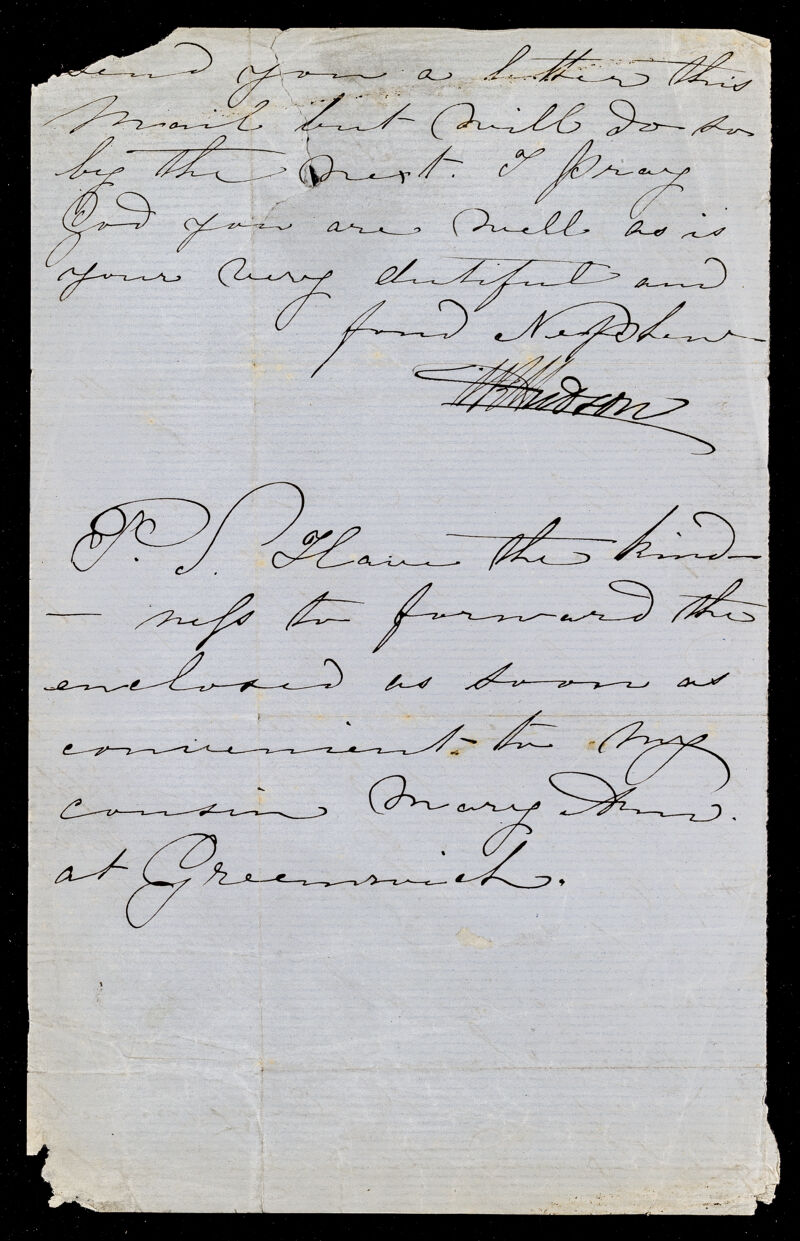 send you a letter this
Mail but will do so
by the next. I pray
God you are well as is
your very dutiful and
fond Nephew
Hudson
P. S. Have the kind-
- ness to forward the
enclosed as soon as
convenient to my
cousin Mary Ann.
at Greenwich.